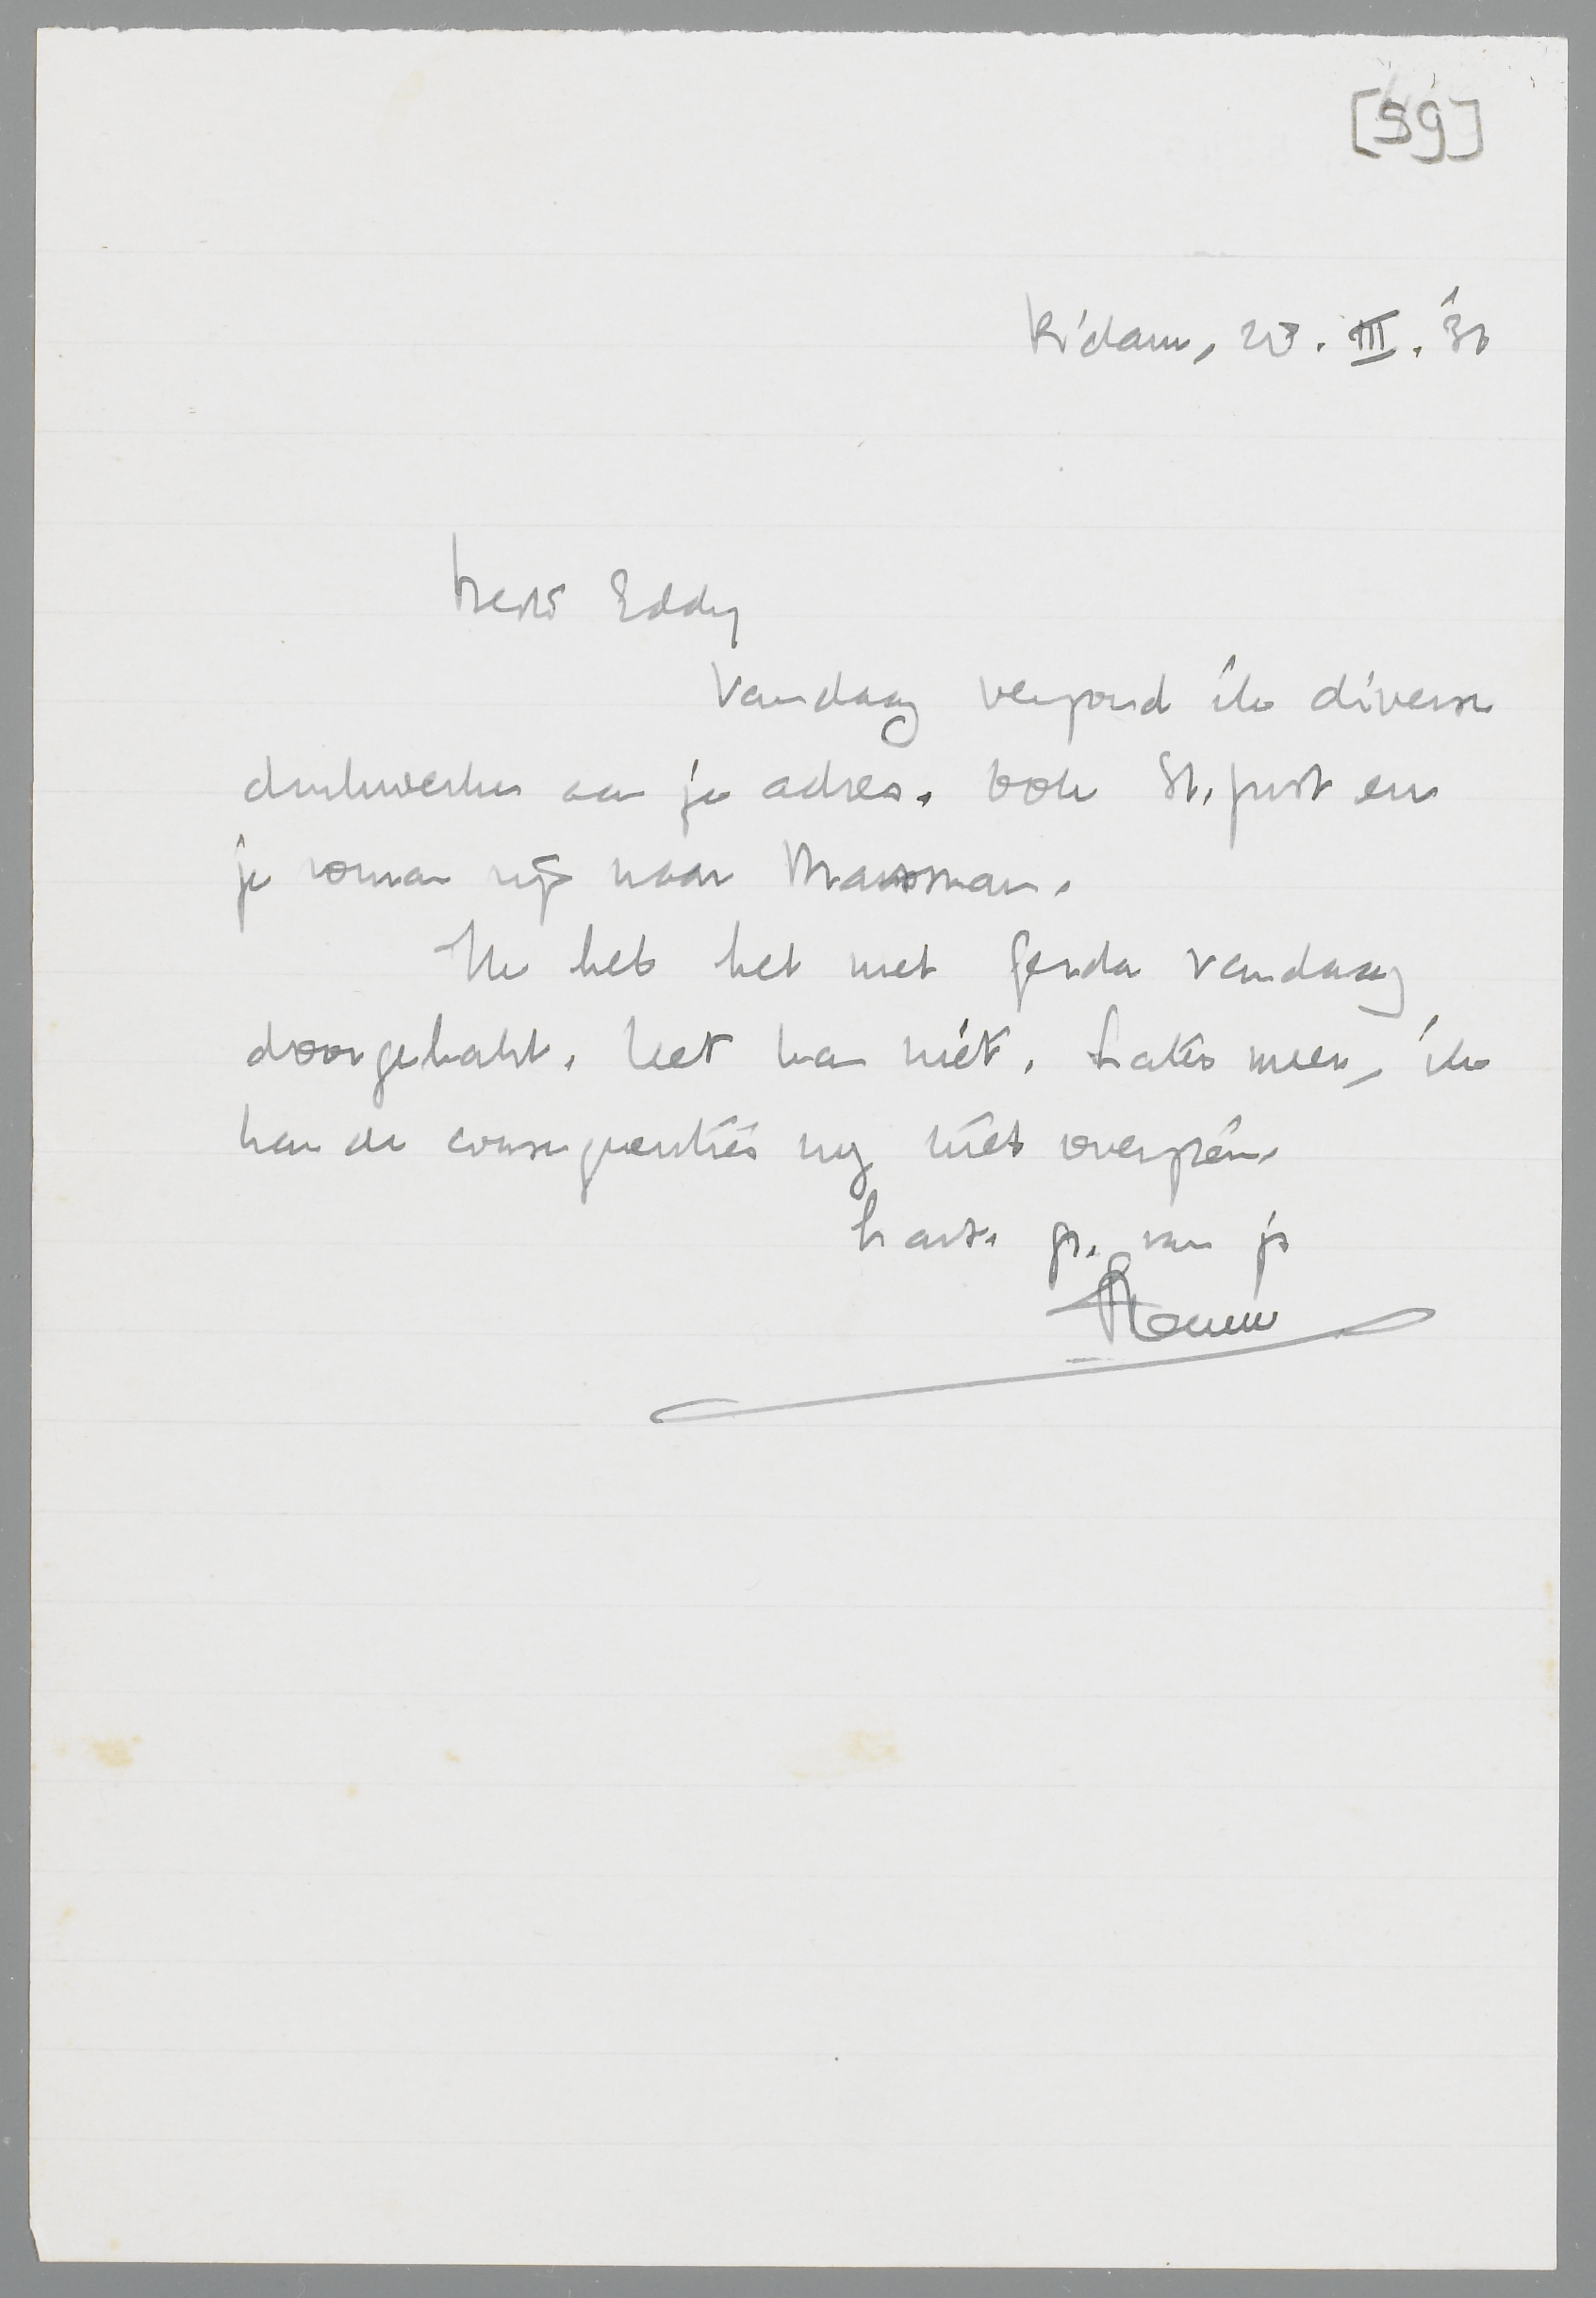 [59]
R'dam, 20. III. '31
Beste Eddy
Vandaag verzond ik diverse
drukwerken aan je adres. Ook St. Just en
je roman zijn naar Marsman.
Ik heb het met Gerda vandaag
doorgehakt. Het kan niet. Later meer, ik
kan de consequenties nog niet overzien.
hart. gr. van je
Menno